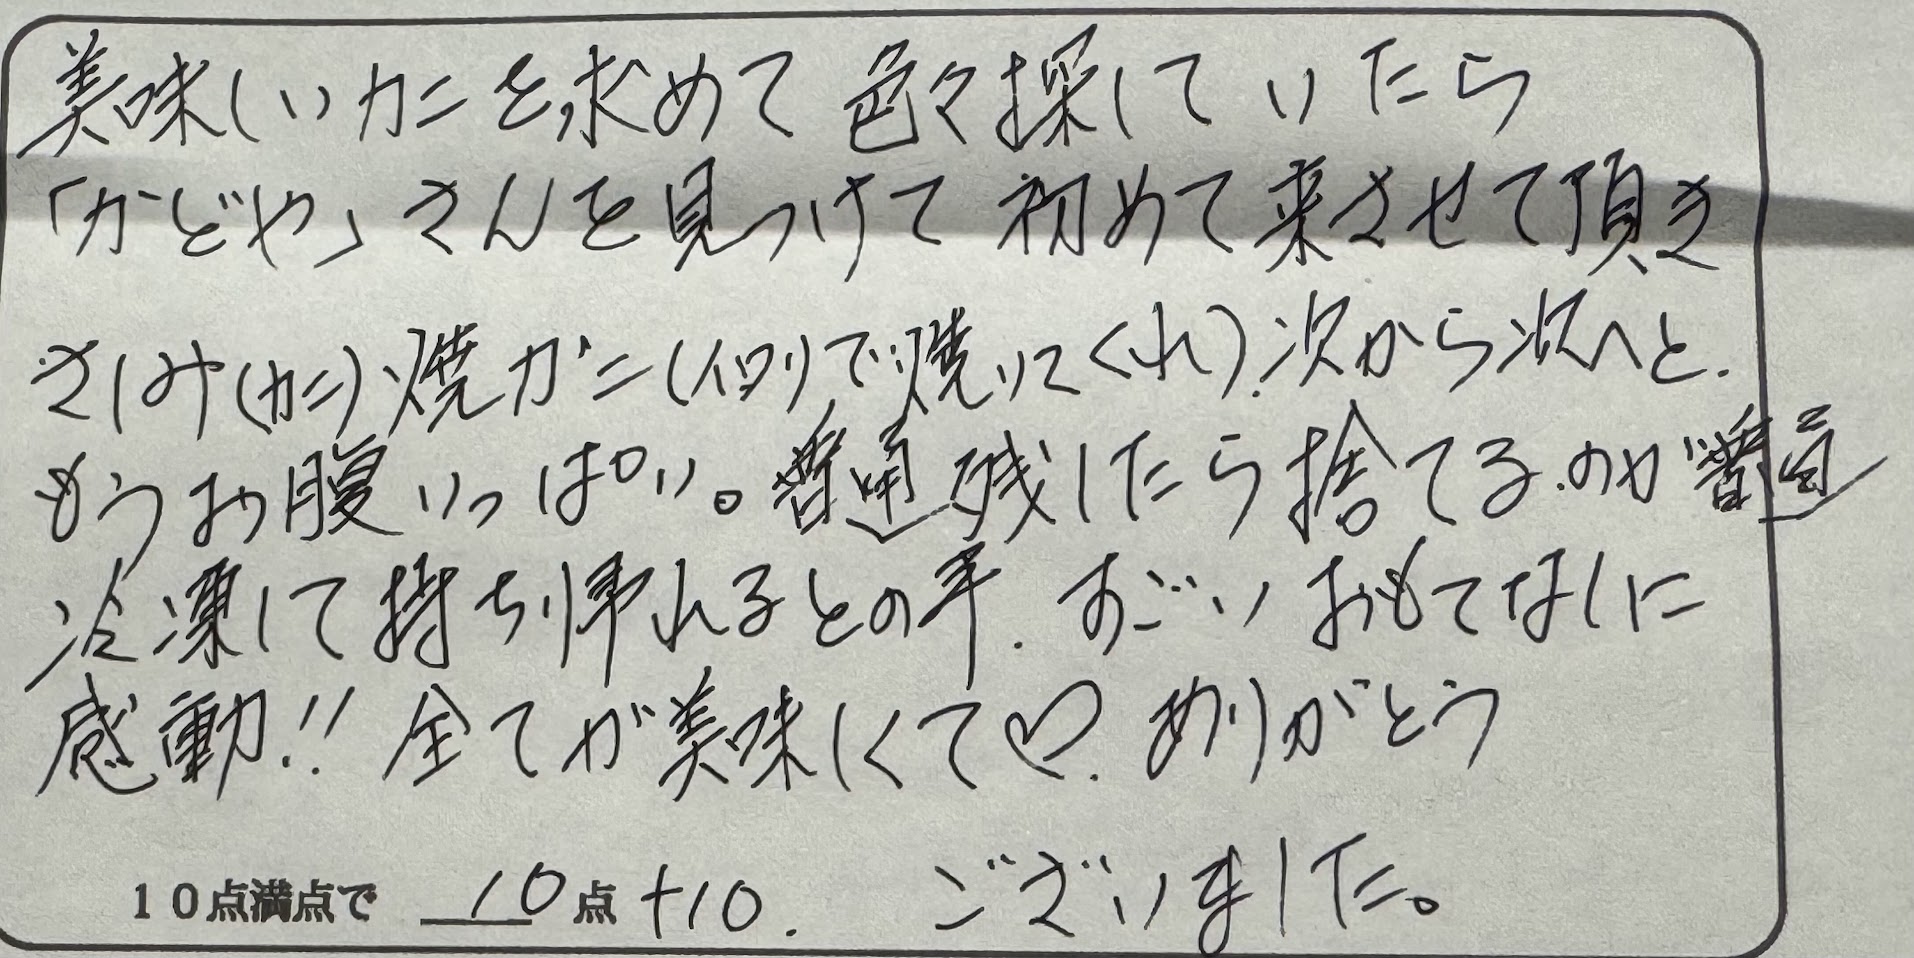 美味しいカニを求めて色々探していたら
「かどや」さんを見つけて初めて来させて頂き
さしみ(カニ)焼ガニ(イロリで焼いてくれ)次から次へと、
もうお腹いっぱい。普通残したら捨てるのが普通
冷凍して持ち帰れるとの事、すごいおもてなしに
感動!!全てが美味しくて♡ありがとう
ございました。
10点満点で 10点+10.